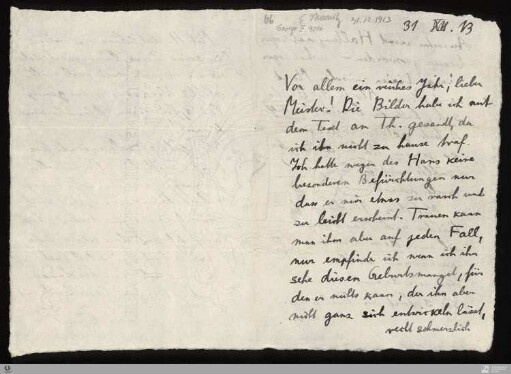 66
31.12.1913
31 XII. 13
Vor allem ein reiches Jahr, lieber
Meister! Die Bilder habe ich mit
dem Text an Th. gesandt, da
ich ihn nicht zu hause traf.
Ich hatte wegen des Hans keine
besonderen Befürchtungen nur
dass er mir etwas zu rasch und
zu leicht erscheint. Trauen kann
man ihm aber auf jeden Fall,
nur empfinde ich wenn ich ihn
sehe diesen Geburtsmangel, für
den er nichts kann, der ihn aber
nicht ganz sich entwickeln lässt,
recht schmerzlich